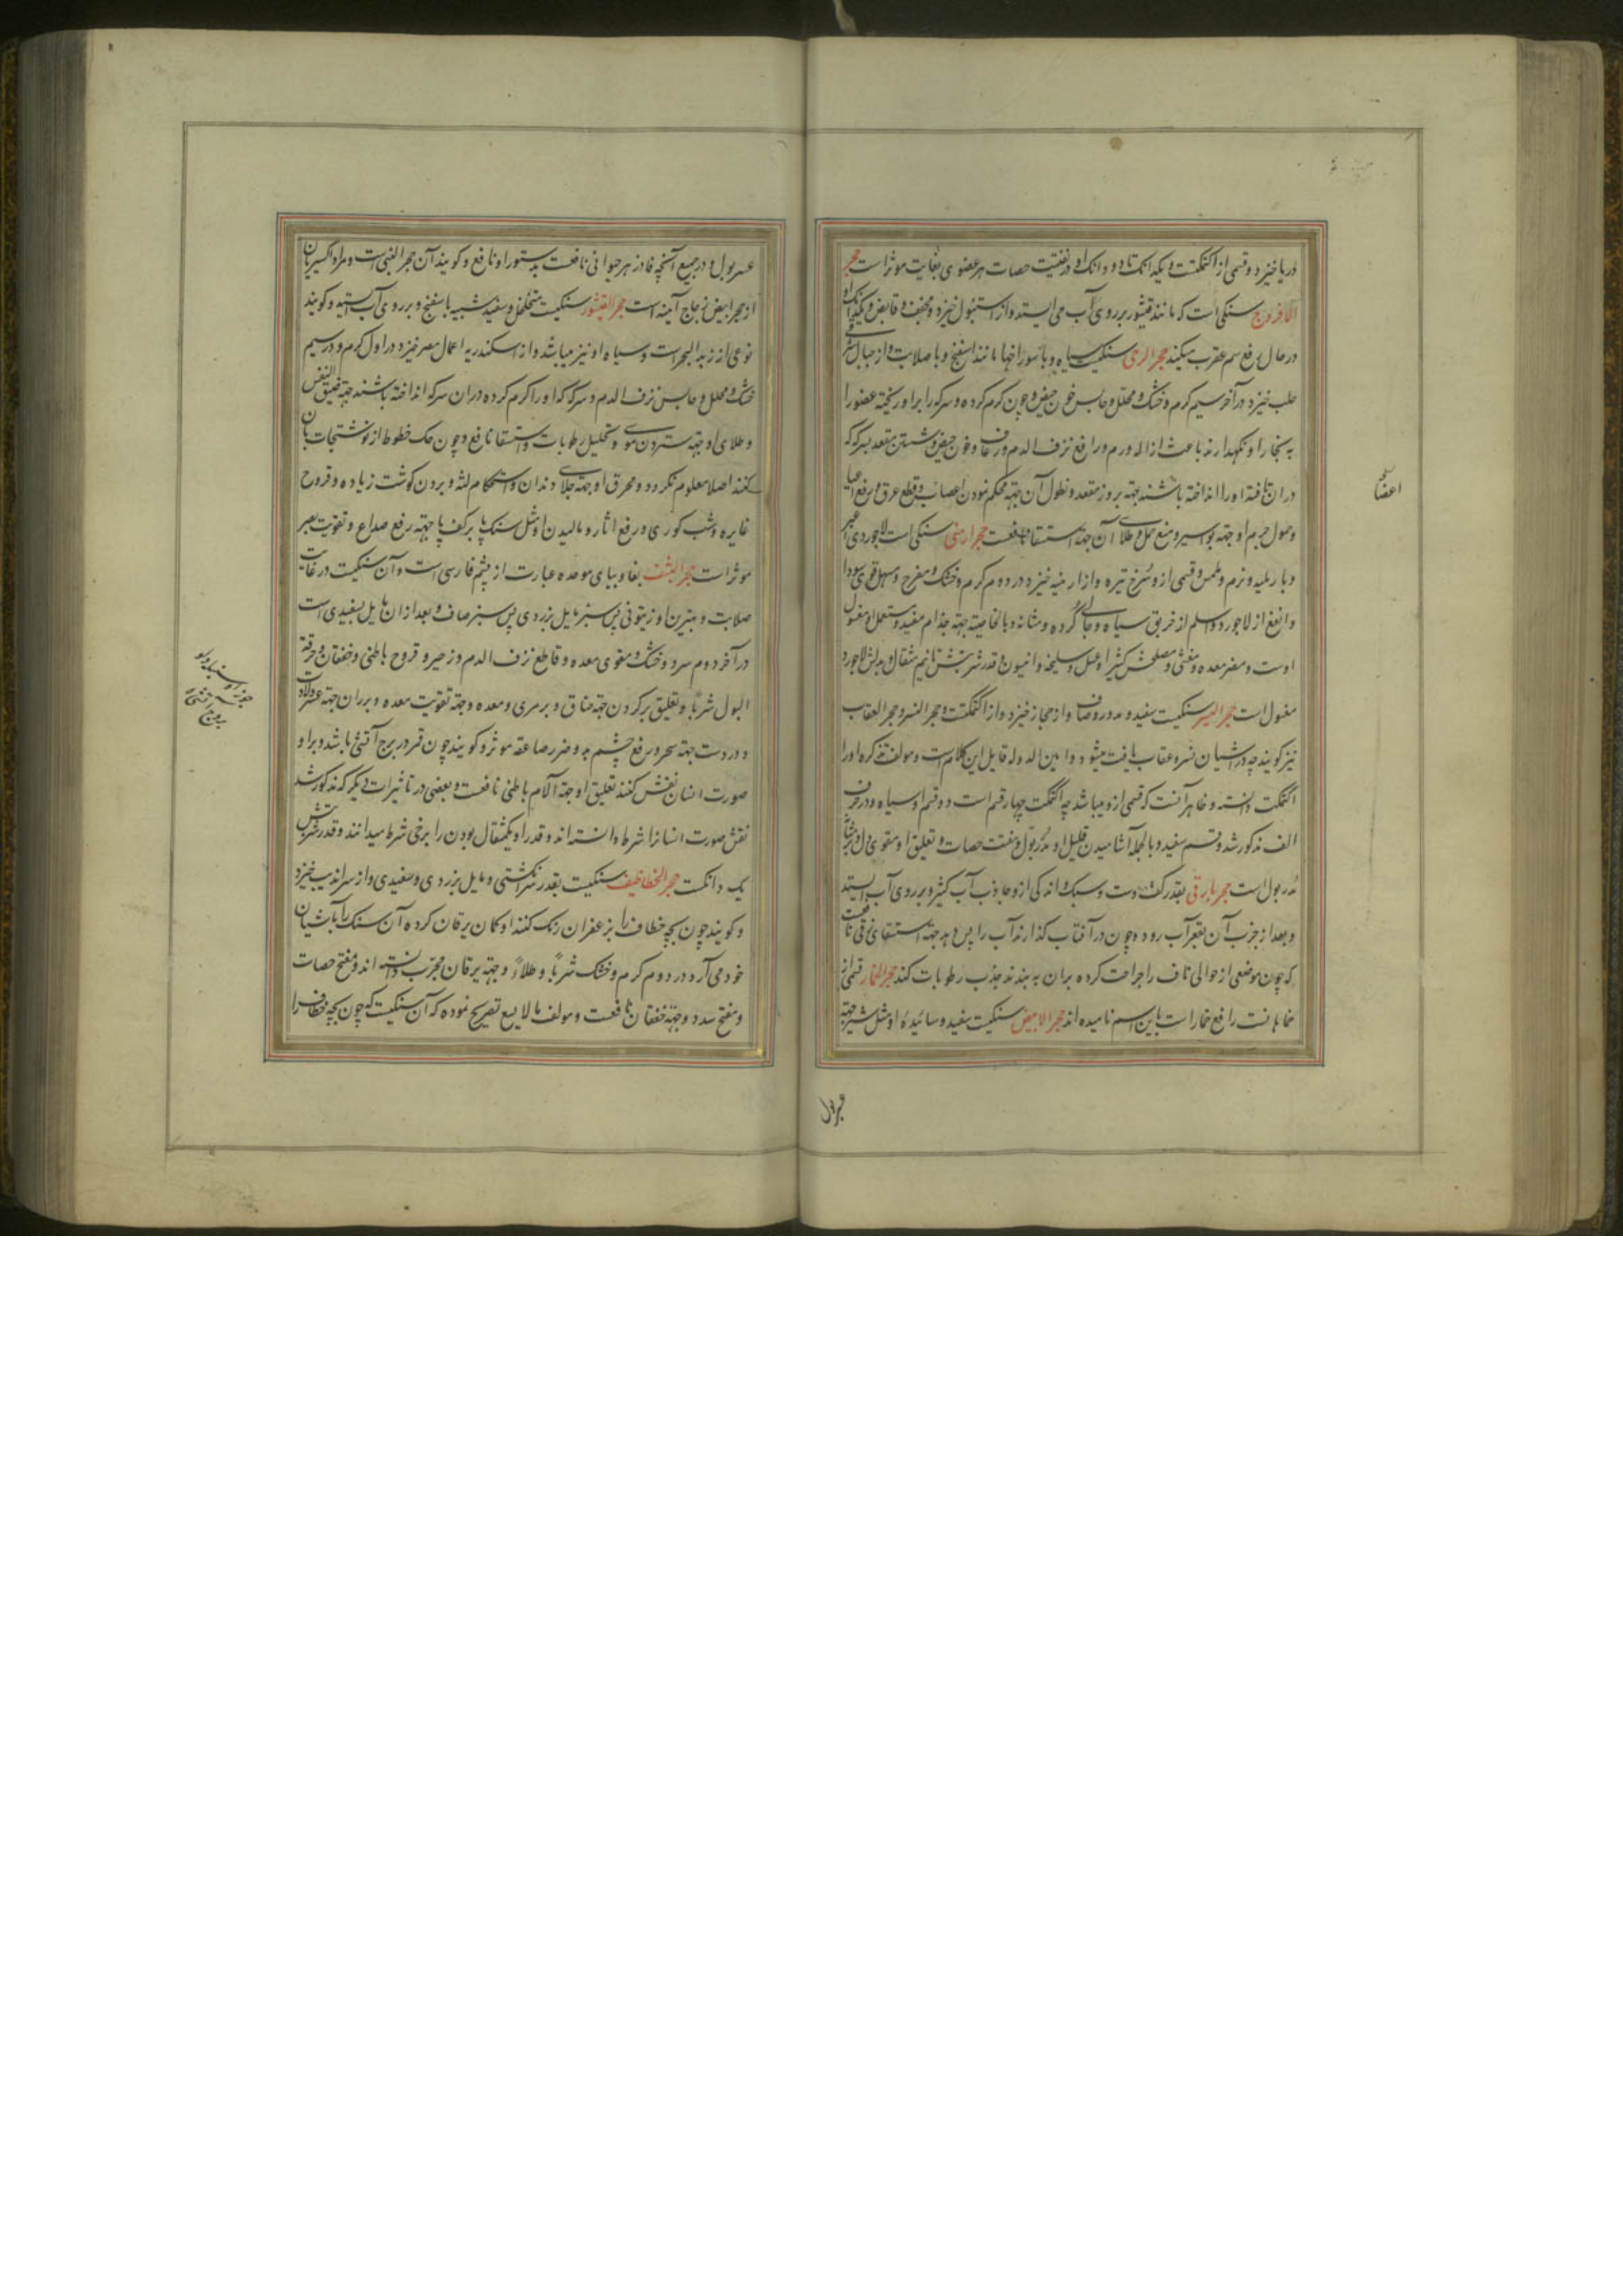 دریا خیزد و قسمی از اکتمکت و یکدانک تا دو دانک او در تفتیت حصات هر عضوی بغایت موثر است حجر
الافروج سنکی است که مانند قیشور بر روی آب می ایستد و از استنبول خیزد و مجفف و قابض و یکدانک او
در حال رفع سم عقرب میکند حجر الرحی سنکیست سیاه و با سوراخها مانند اسفنج و با صلابت و از جبال شرقی
حلب خیزد در آخر سیم کرم و خشک و محلل و حابس خون حیض و چون کرم کرده و سرکه را بر او ریخته عضو را
به بخار او نکهدارند باعث ازاله ورم و رافع نزف الدم و رعاف و خون حیض و شستن مقعد بسرکه که
در ان تافته او را انداخته باشند جهة بروز مقعد و نطول آن جهة محکم نمودن اعصاب و قطع عرق و رفع اعیا
و حمول جرم او جهة بواسیر و منع حمل و طلای آن جهة استسقا نافعست حجر ارمنی سنکی است لاجوردی اغبر
و با رملیه و نرم و ملمس و قسمی از و سرخ تیره و از ارمنیه خیزد در دوم کرم و خشک و مفرح و مسهل قوی سودا
و انفع از لاجورد و اسلم از خربق سیاه و جالی کرده و مثانه و بالخاصیة جهة جذام مفید و مستعمل مغسول
اوست و مضر معده و مغثی و مصلحش کثیرا و عسل و سلیخه و انیسون و قدر شربتش تا نیم مثقال و بدلش لاجورد
مغسول است حجر الیسر سنکیست سفید و مدور و صاف و از حجاز خیزد و از اکتمکت و حجر النسر و حجر العقاب
نیز کویند چه در آشیان نسر و عقاب یافت میشود و امین الدوله قایل این کلام است و مولف تذکره او را
اکتمکت دانسته و ظاهر آنست که قسمی از و میباشد چه اکتمکت چهار قسم است و دو قسم او سیاه و در حرف
الف مذکور شد و قسم سفید و بالجمله آشامیدن قلیل او مدر بول و مفتت حصات و تعلیق او مقوی دل و
مدر بول است حجر بارقی بقدر کف دست و سبک و اندکی از و جاذب آب کثیر و بر روی آب ایستد
و بعد از جذب آن بقعر آب رود و چون در آفتاب کذارند آب را پس دهد جهة استسقای زقی نافعست
که چون موضعی از حوالی ناف را جراحت کرده بران به بندند جذب رطوبات کند حجر الخمار قسمی از
خماهانست رافع خمار است باین اسم نامیده اند حجر الابیض سنکیست سفید و سائیده او مثل شیر جهة
اعضا
عسر بول و در جمیع آنچه فادزهر حیوانی نافعست بدستور او نافع و کویند آن حجر النبی است و مراد اکسیریان
از حجر ابیض زجاج آینه است حجر القیشور سنکیست متخلخل و سفید شبیه باسفنج و بر روی آب ایستد و کویند
نوعی از زبد البحر است و سیاه او نیز میباشد و از اسکندریه اعمال مصر خیزد در اول کرم و در سیم
خشک و محلل و حابس نزف الدم و سرکه که او را کرم کرده در ان سرکه انداخته باشند جهة ضیق النفس
و طلای او جهة ستردن موی و تحلیل رطوبات و استسقا نافع و چون حک خطوط از نوشتجات بان
کنند اصلا معلوم نکردد و محرق او جهة جلای دندان و استحکام لثه و بردن کوشت زیاده و قروح
غایره و شب کوری و رفع اثار و مالیدن او مثل سنک پا بر کف پا جهة رفع صداع و تقویت بصر
موثر است حجر الیشف بفا و ببای موحده عبارت از یشم فارسی است و آن سنکیست در غایت
صلابت و بهترین او زیتونی پس سبز مایل بزردی پس سبز صاف و بعد از ان مایل بسفیدی است
در آخر دوم سرد و خشک و مقوی معده و قاطع نزف الدم و زحیر و قروح باطنی و خفقان و حرقة
البول شربا و تعلیق بر کردن جهة خناق و بر مری و معده و جهة تقویت معده و بر ران جهة عسر ولادت
و در دست جهة سحر و رفع چشم بد و ضرر صاعقه موثر و کویند چون قمر در برج آتشی باشد و بر او
صورت انسان نقش کنند تعلیق او جهة آلام باطنی نافعست و بعضی در تاثیرات دیکر که مذکور شد
نقش صورت انسانرا شرط دانسته اند و قدر او یکمثقال بودن را برخی شرط میدانند و قدر شربتش
یک دانکست حجر الخطاطیف سنکیست بقدر سر انکشتی و مایل بزردی و سفیدی و از سراندیب خیزد
و کویند چون بچه خطاف را بزعفران رنک کنند او کمان یرقان کرده آن سنک را بآشیان
خود می آرد در دوم کرم و خشک شربا و طلاء و جهة یرقان مجرب دانسته اند و مفتح حصات
و مفتح سدد و جهة خفقان نافعست و مولف مالایسع تصریح نموده که آن سنکیست که چون بچه خطاف را